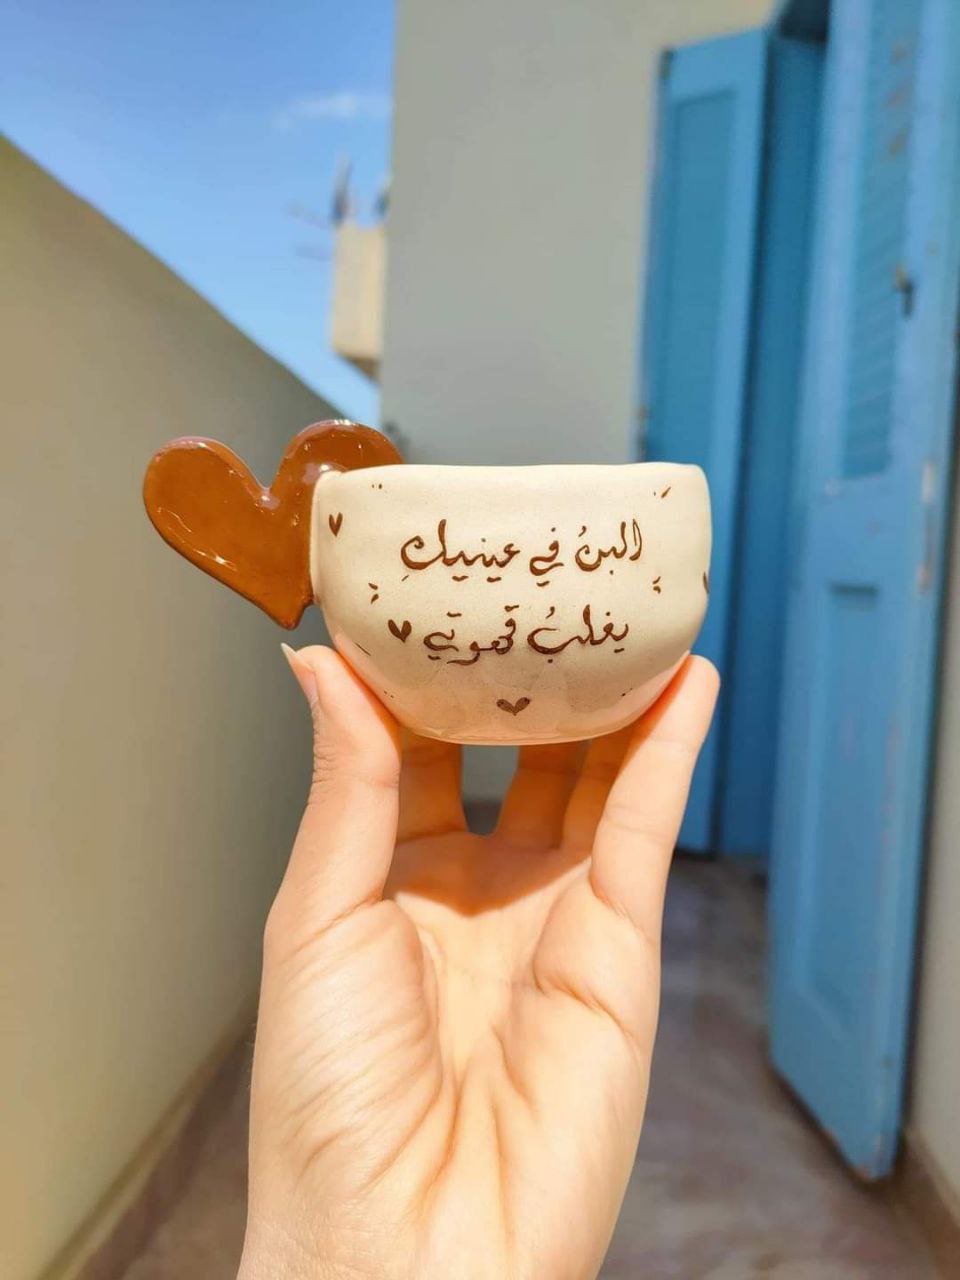 البنُ في عينيكِ
يغلبُ قهوتي